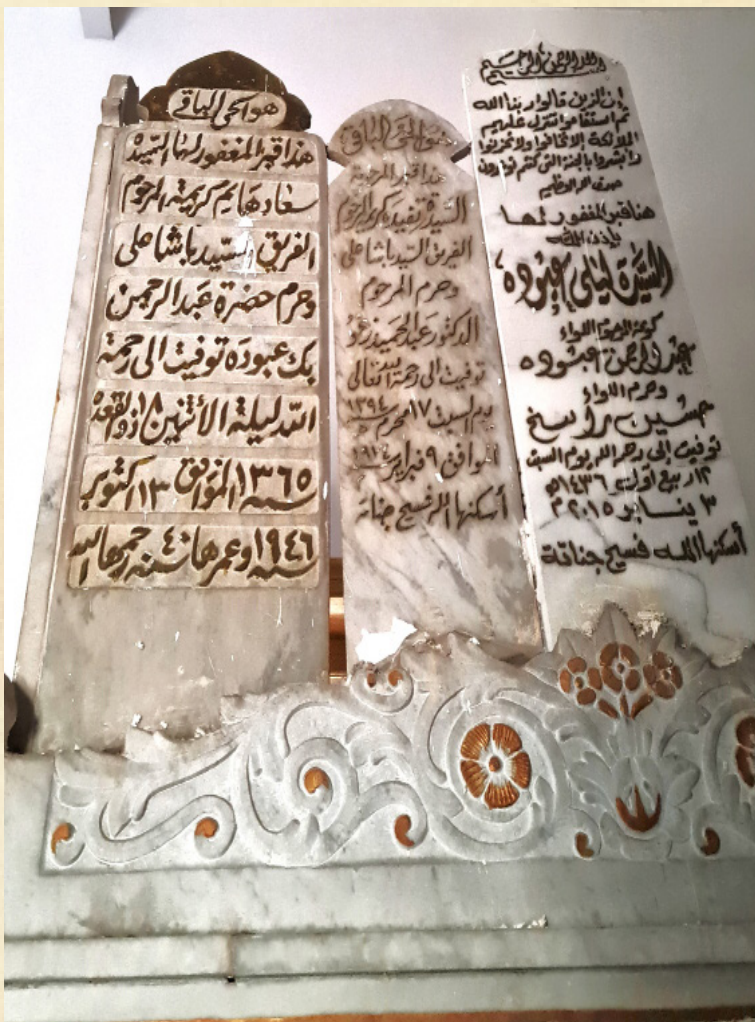 بسم الله الرحمن الرحيم
إن الذين قالوا ربنا الله
ثم استقاموا تتنزل عليهم
الملائكة ألا تخافوا ولا تحزنوا
وابشروا بالجنة التى كنتم توعدون
صدق الله العظيم
هنا قبر المغفور لها
بإذن الله
السيدة ليلى عبوده
كريمة المرحوم اللواء
عبد الرحمن عبوده
وحرم اللواء
حسين راسخ
توفيت إلى رحمة الله يوم السبت
١٢ ربيع أول ١٤٣٦ه
٣ يناير ٢٠١٥ م
أسكنها الله فسيح جناته
هو الحى الباقى
هذا قبر المرحومة
السيدة تفيده كريمة المرحوم
الفريق السيد باشا على
وحرم المرحوم
الدكتور عبد الحميد
توفيت الى رحمة الله تعالى
يوم السبت ١٧ محرم ١٣٩٤
الموافق ٩ فبراير ١٩٧٤
أسكنها الله فسيح جناته
هو الحى الباقى
هذا قبر المغفور لها السيدة
سعاد هانم كريمة المرحوم
الفريق السيد باشا على
وحرم حضرة عبد الرحمن
بك عبوده توفيت الى رحمة
الله ليلة الأثنين ١٨ ذو القعده
سنة ١٣٦٥ الموافق ١٣ اكتوبر
سنة ١٩٤٦ وعمرها ٤٠ سنه رحمها الله